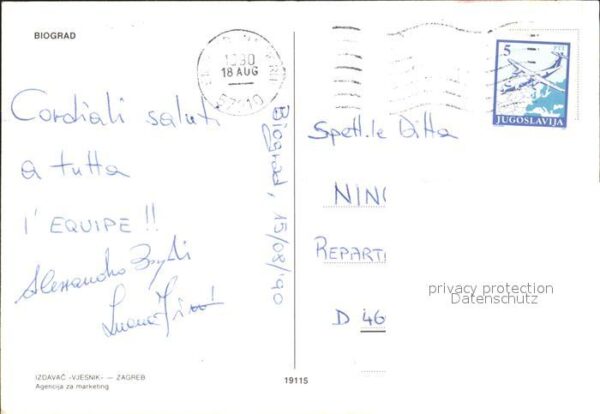 BIOGRAD
1990
18 AUG
5
JUGOSLAVIJA
Cordiali saluti
a tutta
l'EQUIPE !!
Alessandro
Biograd, 15/08/'90
Spett.le Ditta
NINC
REPARTI
D 46
privacy protection
Datenschutz
IZDAVAČ »VJESNIK« — ZAGREB
Agencija za marketing
19115